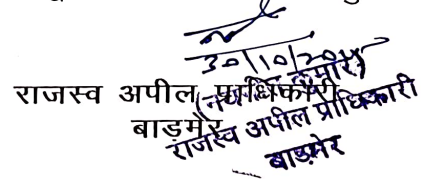 30/10/20
राजस्व अपील प्राधिकारी
बाड़मेर
राजस्व अपील प्राधिकारी
बाड़मेर